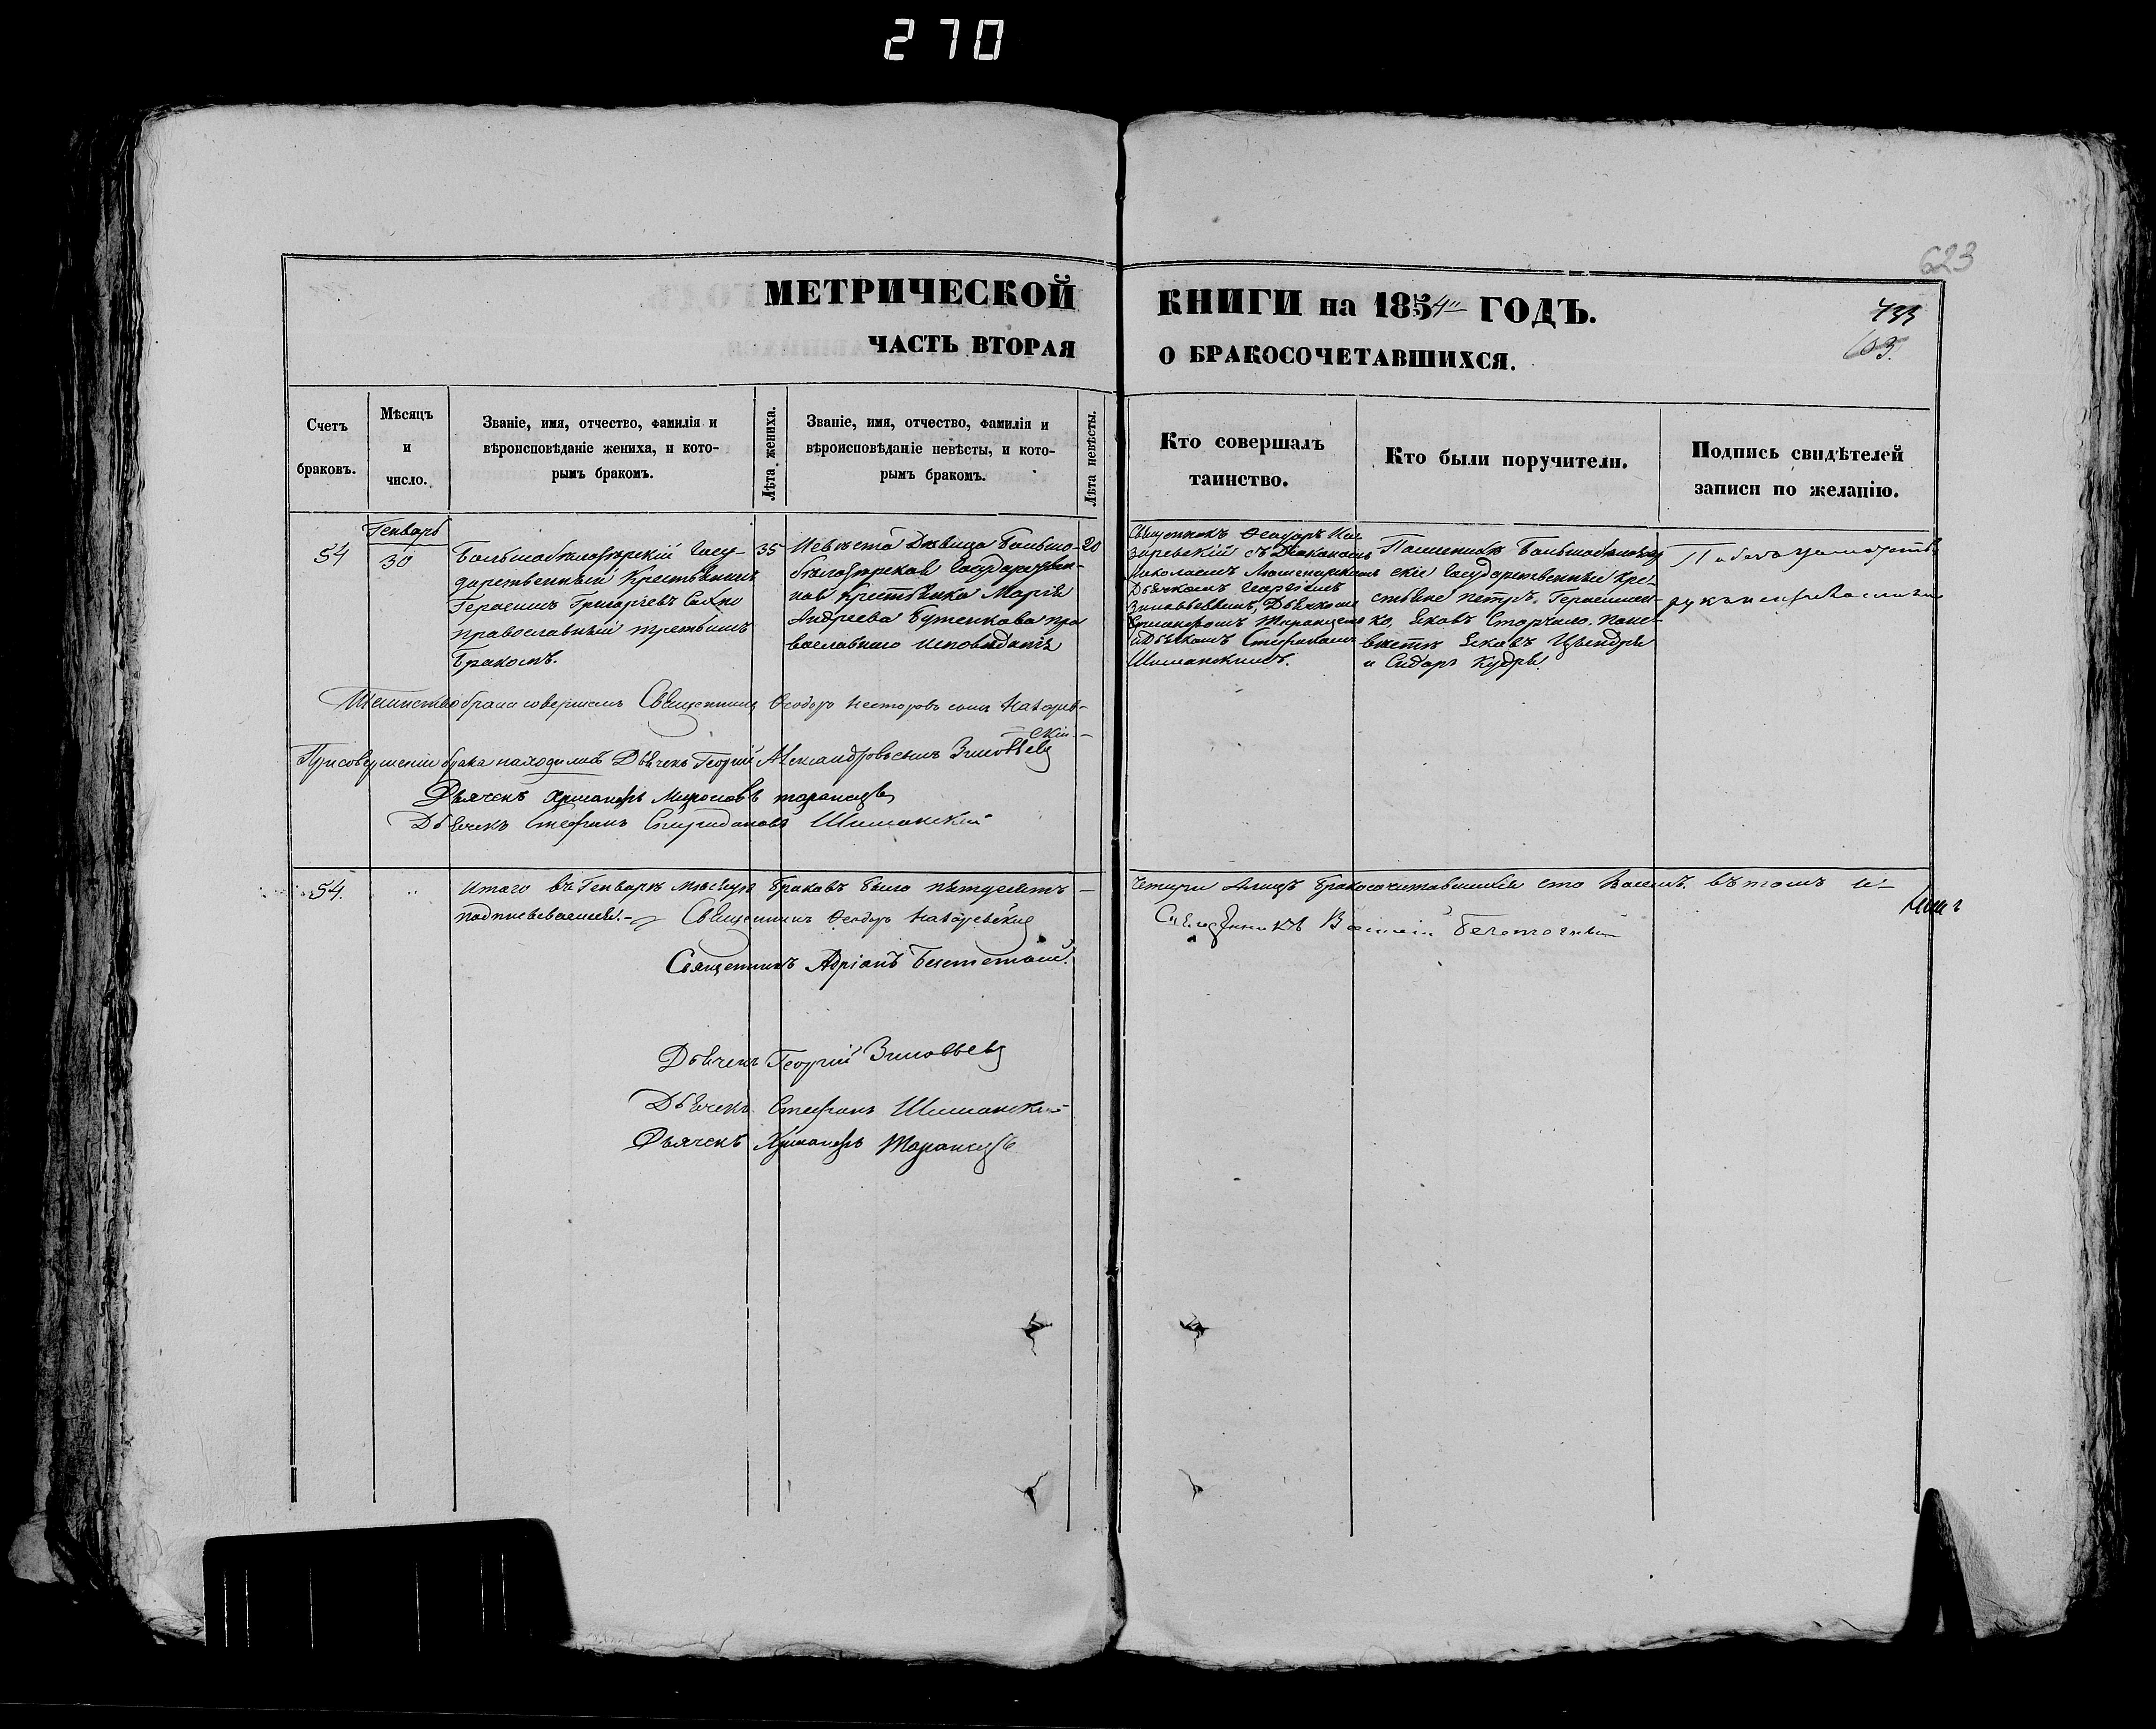 270
623
МЕТРИЧЕСКОЙ КНИГИ на 1854 ГОДЪ.
733
603.
ЧАСТЬ ВТОРАЯ О БРАКОСОЧЕТАВШИХСЯ.
Счетъ браковъ.
Мѣсяцъ и число.
Званіе, имя, отчество, фамилія и
вѣроисповѣданіе жениха, и кото-
рымъ бракомъ.
Лѣта жениха.
Званіе, имя, отчество, фамилія и
вѣроисповѣданіе невѣсты, и кото-
рымъ бракомъ.
Лѣта невѣсты.
Кто совершалъ
таинство.
Кто были поручители.
Подпись свидѣтелей
записи по желанію.
54
Генварь
30
Большобѣлозѣрскій Госу-
дарственный Крестьянинъ
Герасимъ Григорьевъ
православный третьимъ
бракомъ.
35
Невѣста Дѣвица Большо-
бѣлозѣрская Государствен-
ная крестьянка Марія
Андреева Бутенкова пра
вославнаго исповѣданія
20
Священникъ Феодоръ На
заревскій съ Діакономъ
Николаемъ
Дьячкомъ Георгіемъ
Зиновьевымъ, Дьячкомъ
Таранцемъ
и Дьячкомъ Стефаномъ
Шиманскимъ.
По женихѣ Большобѣлозер
скіе Государственные кре-
стьяне Петръ Герасимен-
ко, Яковъ Сторчило. По не-
вѣстѣ Яковъ Цвиндря
и Сидоръ Кудря.
Таинство брака совершалъ Священникъ Феодоръ Несторовъ сынъ Назарев-
скій
При совершеніи брака находились Дьячекъ Георгій Александровъ сынъ Зиновьевъ
Дьячекъ Мироновъ Таранецъ
Дьячекъ Стефанъ Спиридоновъ Шиманскій
54.
Итаго въ Генварѣ мѣсяцѣ браковъ было пятдесятъ четыри а лицъ бракосочитавшихся сто восемь. въ томъ и
подписываемся. Священникъ Феодоръ Назаревскій
Священникъ Василій
Священникъ Адріанъ
Дьячекъ Георгій Зиновьевъ
Дьячекъ Стефанъ Шиманскій
Дьячекъ Таранецъ